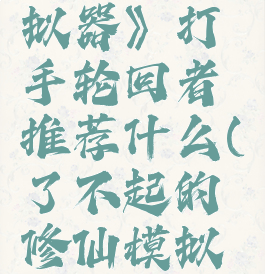 拟器》打
手轮回者
推荐什么(
了不起的
修仙模拟